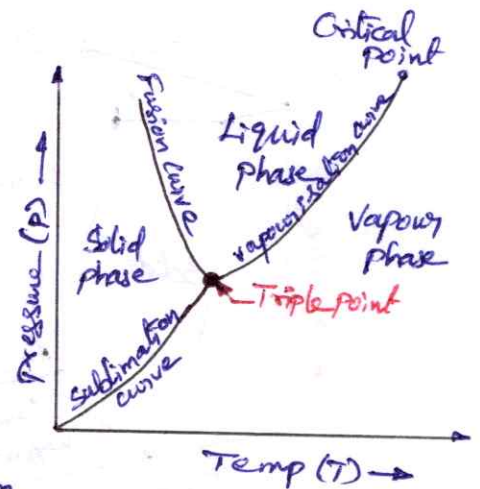 Critical
point
Fusion curve
Liquid
phase
vapourisation curve
Vapour
phase
Solid
phase
Triple point
Sublimation
curve
Pressure (P)
Temp (T)